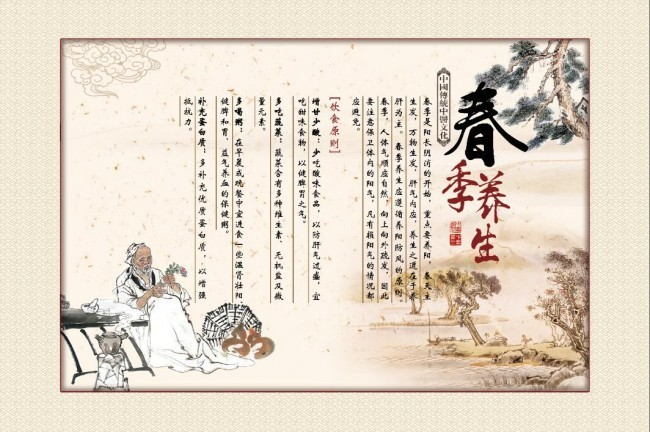 春季养生
中國傳統中醫文化
春季是阳长阴消的开始，重点要养阳。春天主
生发，万物生发，肝气内应，养生之道在于养
肝为主。春季养生应遵循养阳防风的原则。
春季，人体气顺应自然，向上向外疏发，因此
要注意保卫体内的阳气，凡有损阳气的情况都
应避免。
[饮食原则]
增甘少酸：少吃酸味食品，以防肝气过盛，宜
吃甜味食物，以健脾胃之气。
多吃蔬菜：蔬菜含有多种维生素、无机盐及微
量元素。
多喝粥：在早晨或晚餐中宜进食一些温肾壮阳、
健脾和胃、益气养血的保健粥。
补充蛋白质：多补充优质蛋白质，以增强
抵抗力。